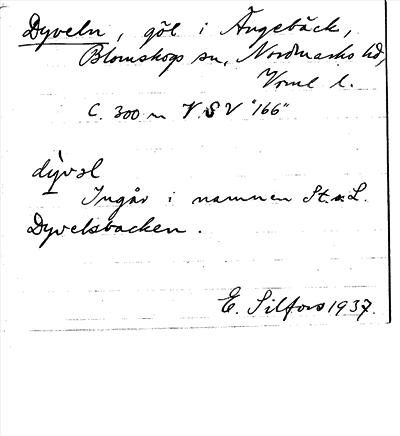 Dyveln, göl i Ängebäck,
Blomskogs sn, Nordmarks hd,
Vrml l.
C. 300 m V.SV "166"
dỳvəl
Ingår i namnen St. o. L.
Dyvelsbacken.
E. Silfors 1937.